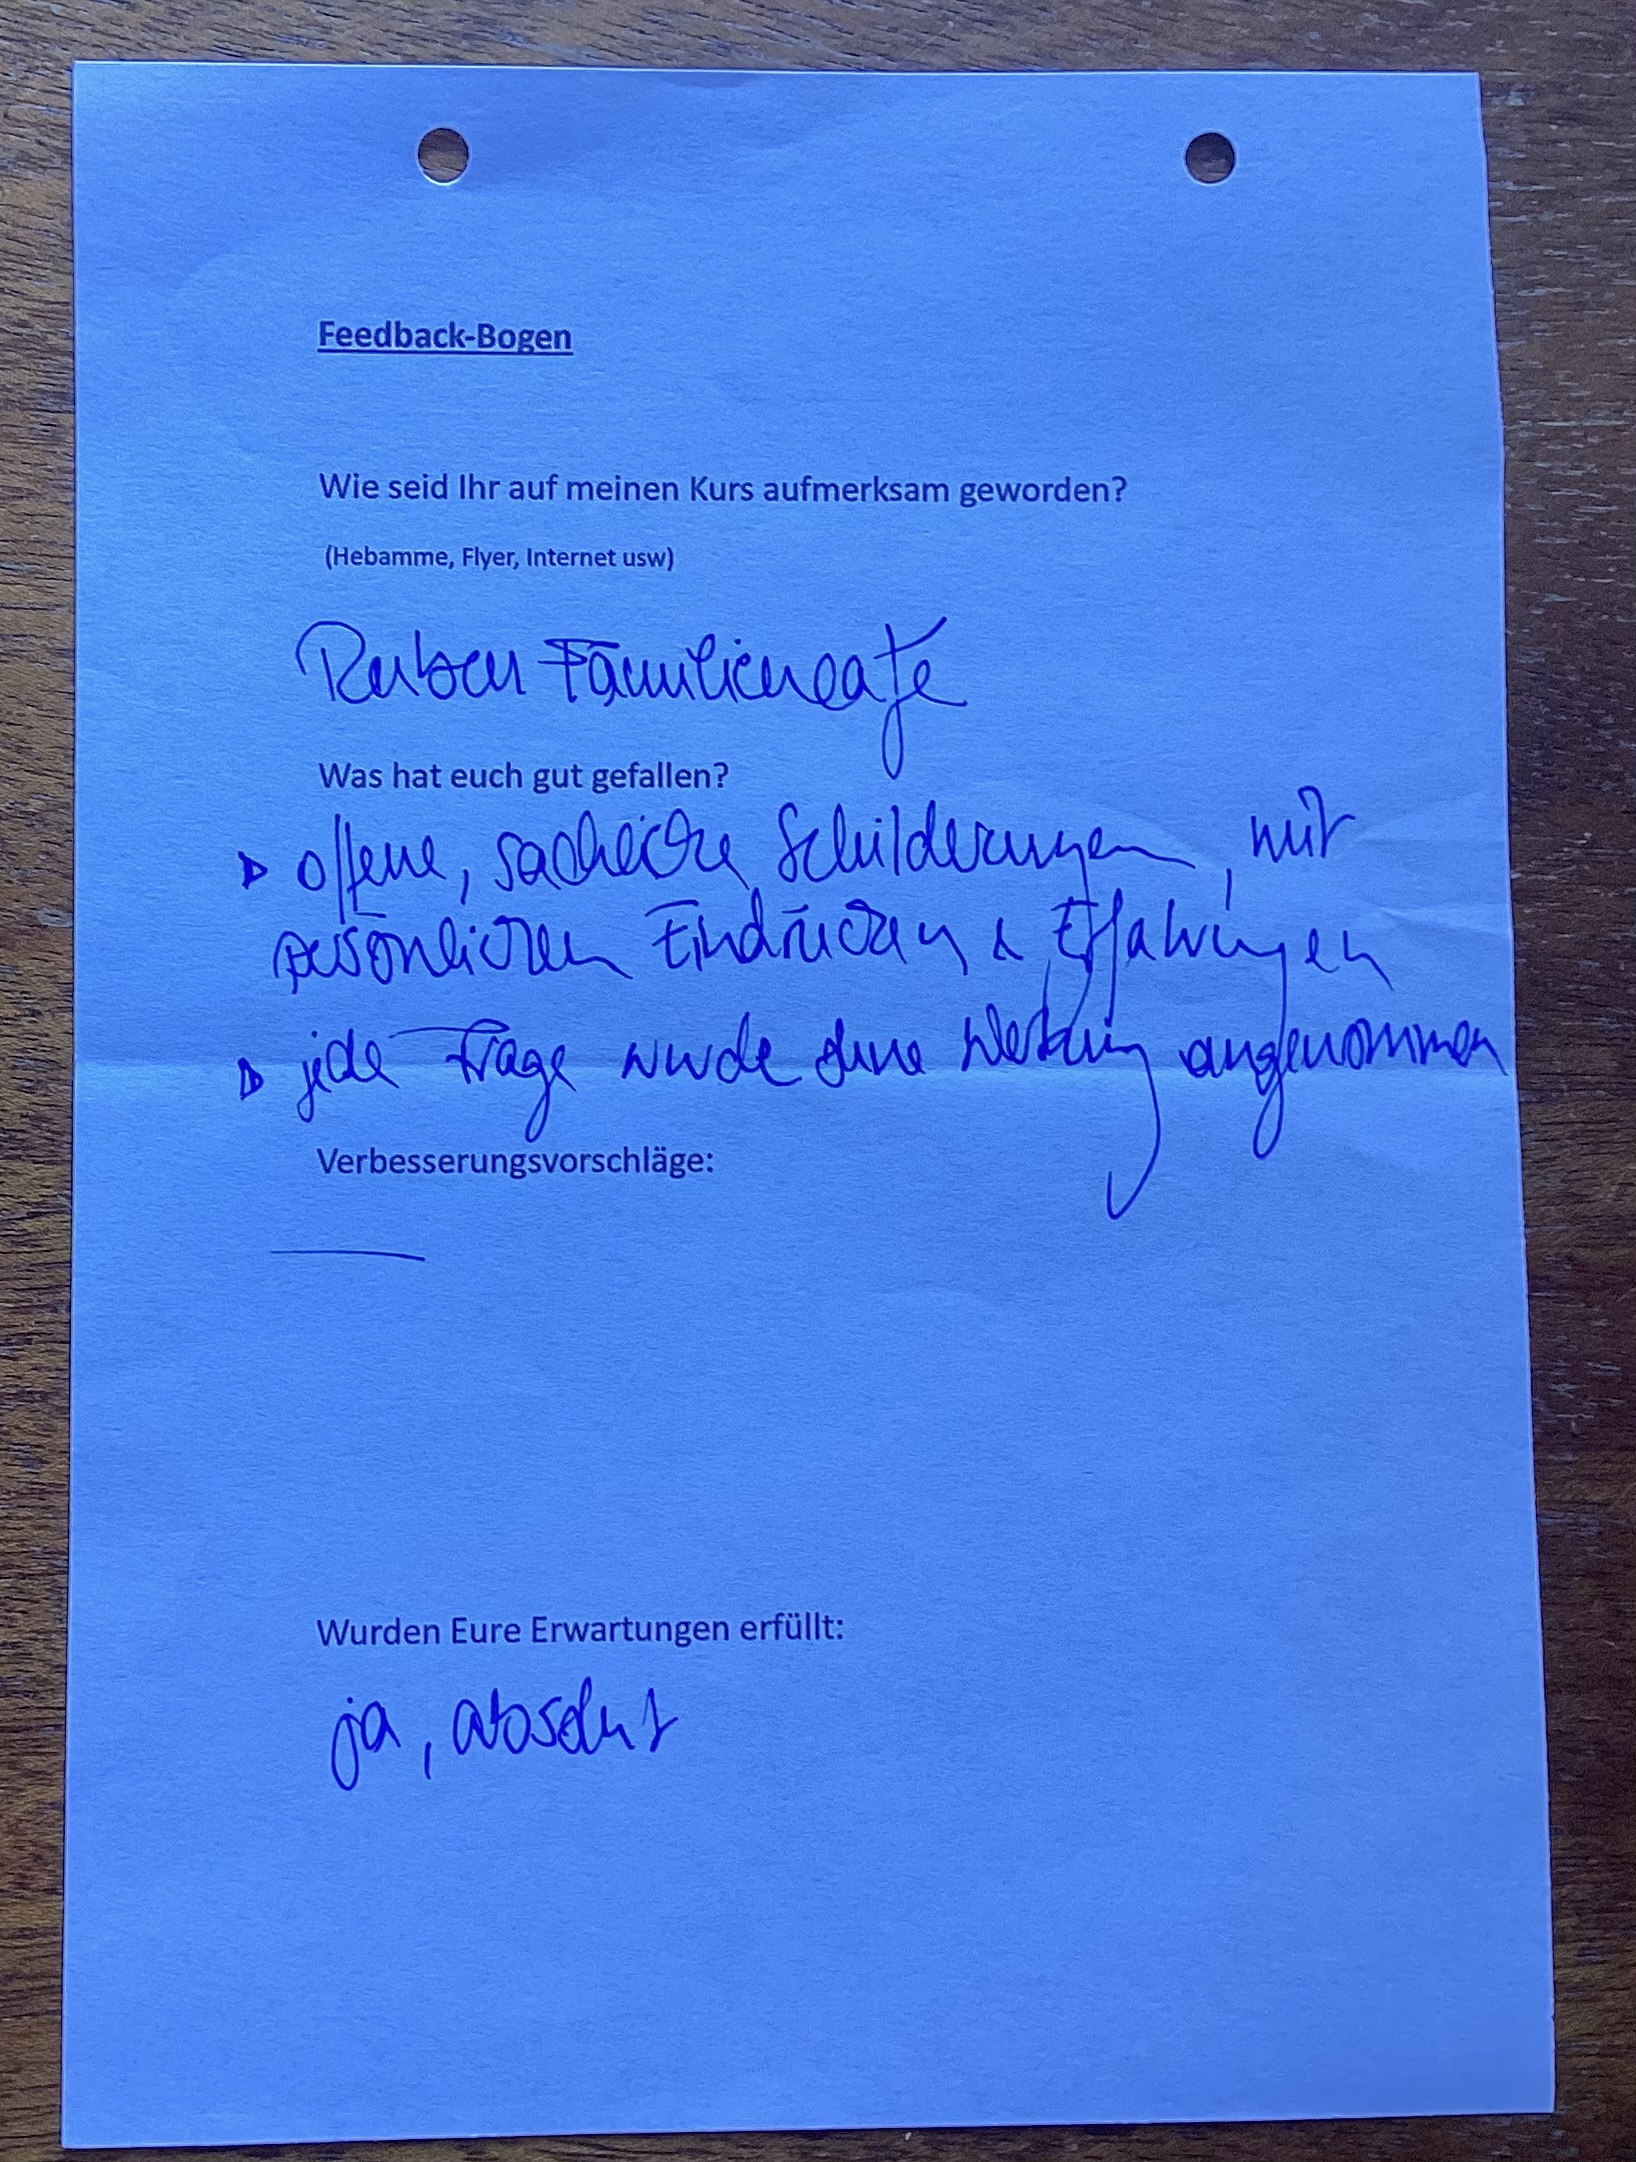 Feedback-Bogen
Wie seid Ihr auf meinen Kurs aufmerksam geworden?
(Hebamme, Flyer, Internet usw)
Familiencafe
Was hat euch gut gefallen?
offene, sachliche Schilderungen, mit
persönlichen Eindrücken & Erfahrungen
jede Frage wurde ohne Wertung angenommen
Verbesserungsvorschläge:
Wurden Eure Erwartungen erfüllt:
ja, absolut